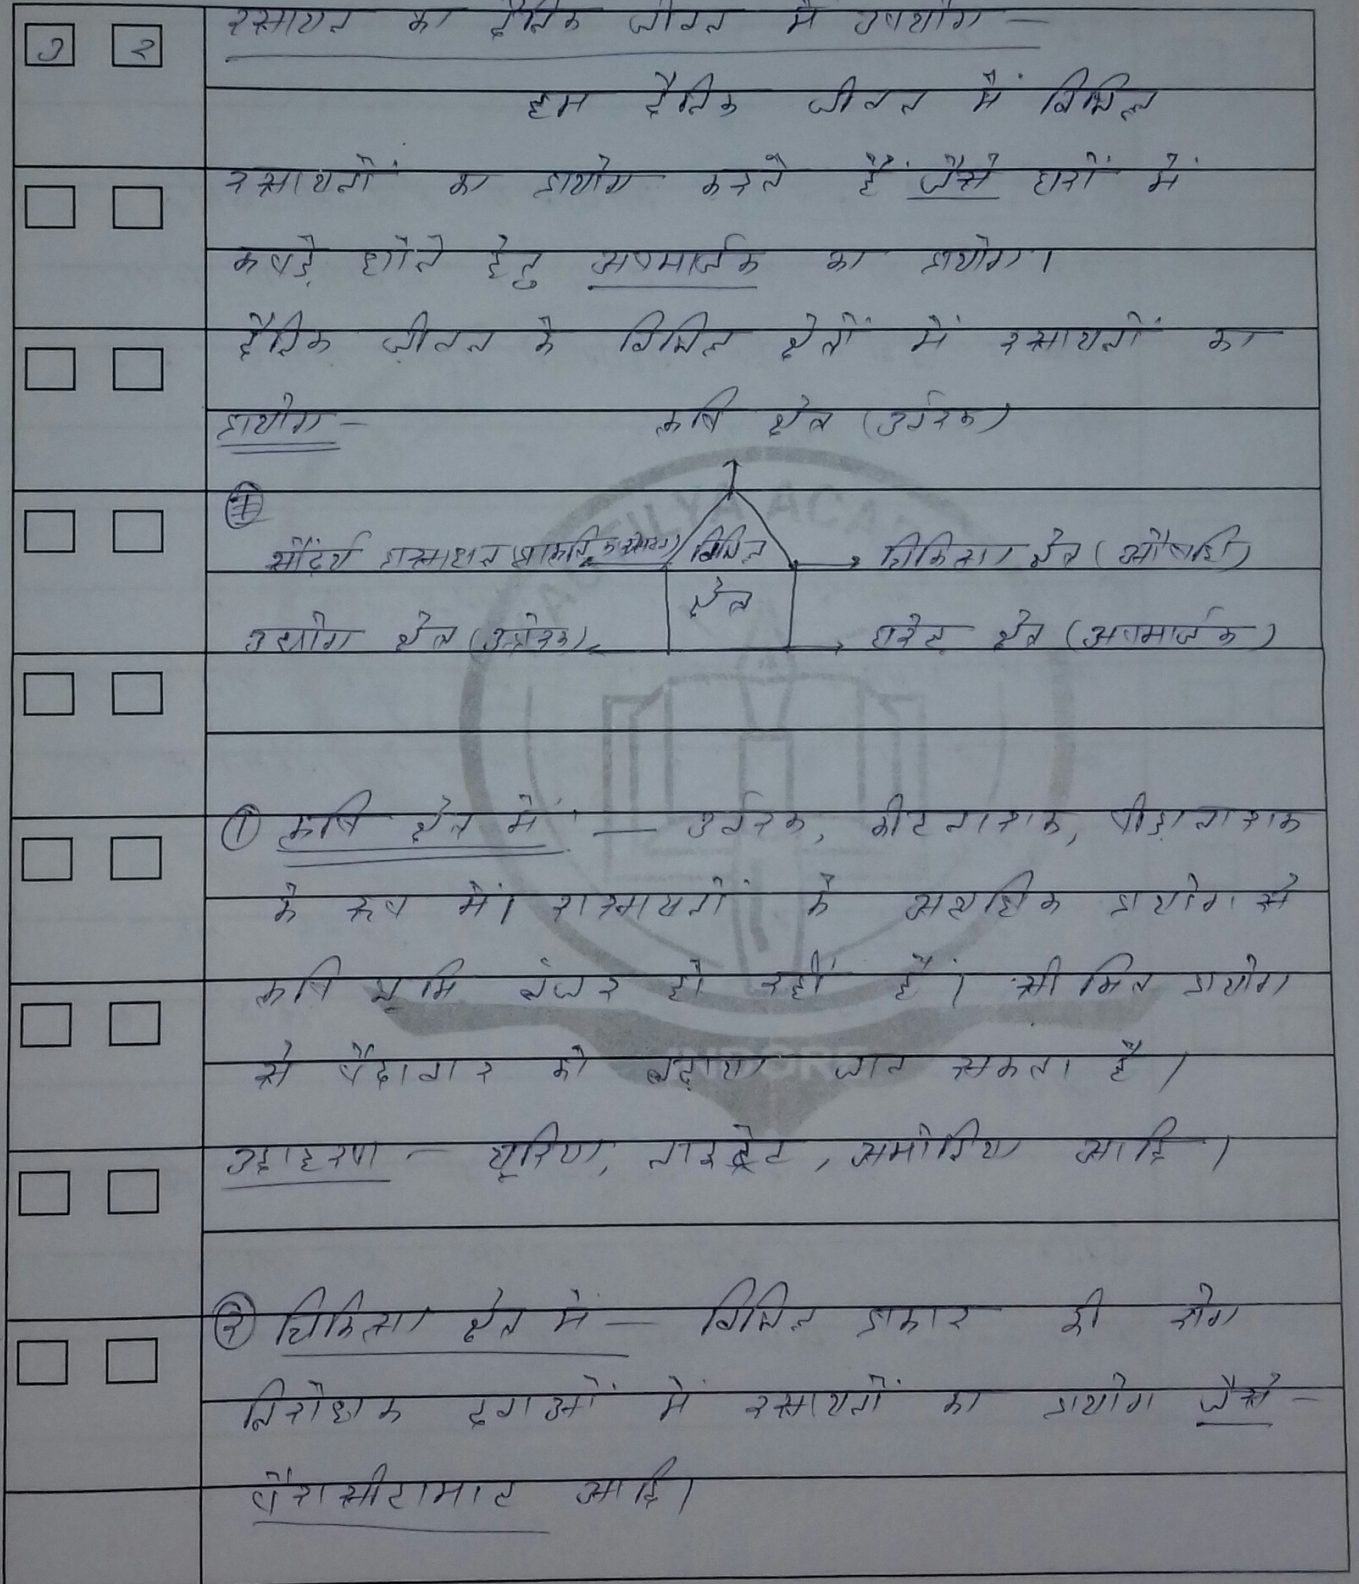 ७ २
रसायन का दैनिक जीवन में उपयोग —
हम दैनिक जीवन में विभिन्न
रसायनों का प्रयोग करते हैं जैसे घरों में
कपड़े धोने हेतु अपमार्जक का प्रयोग।
दैनिक जीवन के विभिन्न क्षेत्रों में रसायनों का
प्रयोग — कृषि क्षेत्र (उर्वरक)
सौंदर्य प्रसाधन विभिन्न चिकित्सा क्षेत्र (औषधि)
क्षेत्र
उद्योग क्षेत्र (उत्प्रेरक) घरेलू क्षेत्र (अपमार्जक)
① कृषि क्षेत्र में — उर्वरक, कीटनाशक, पीड़ानाशक
के रूप में। रासायनों के अत्यधिक प्रयोग से
कृषि भूमि बंजर हो रही है। सीमित प्रयोग
से पैदावार को बढ़ाया जा सकता है।
उदाहरण — यूरिया, नाइट्रेट, अमोनिया आदि।
② चिकित्सा क्षेत्र में — विभिन्न प्रकार की रोग
निरोधक दवाओं में रसायनों का प्रयोग जैसे —
पैरासीटामाट आदि।